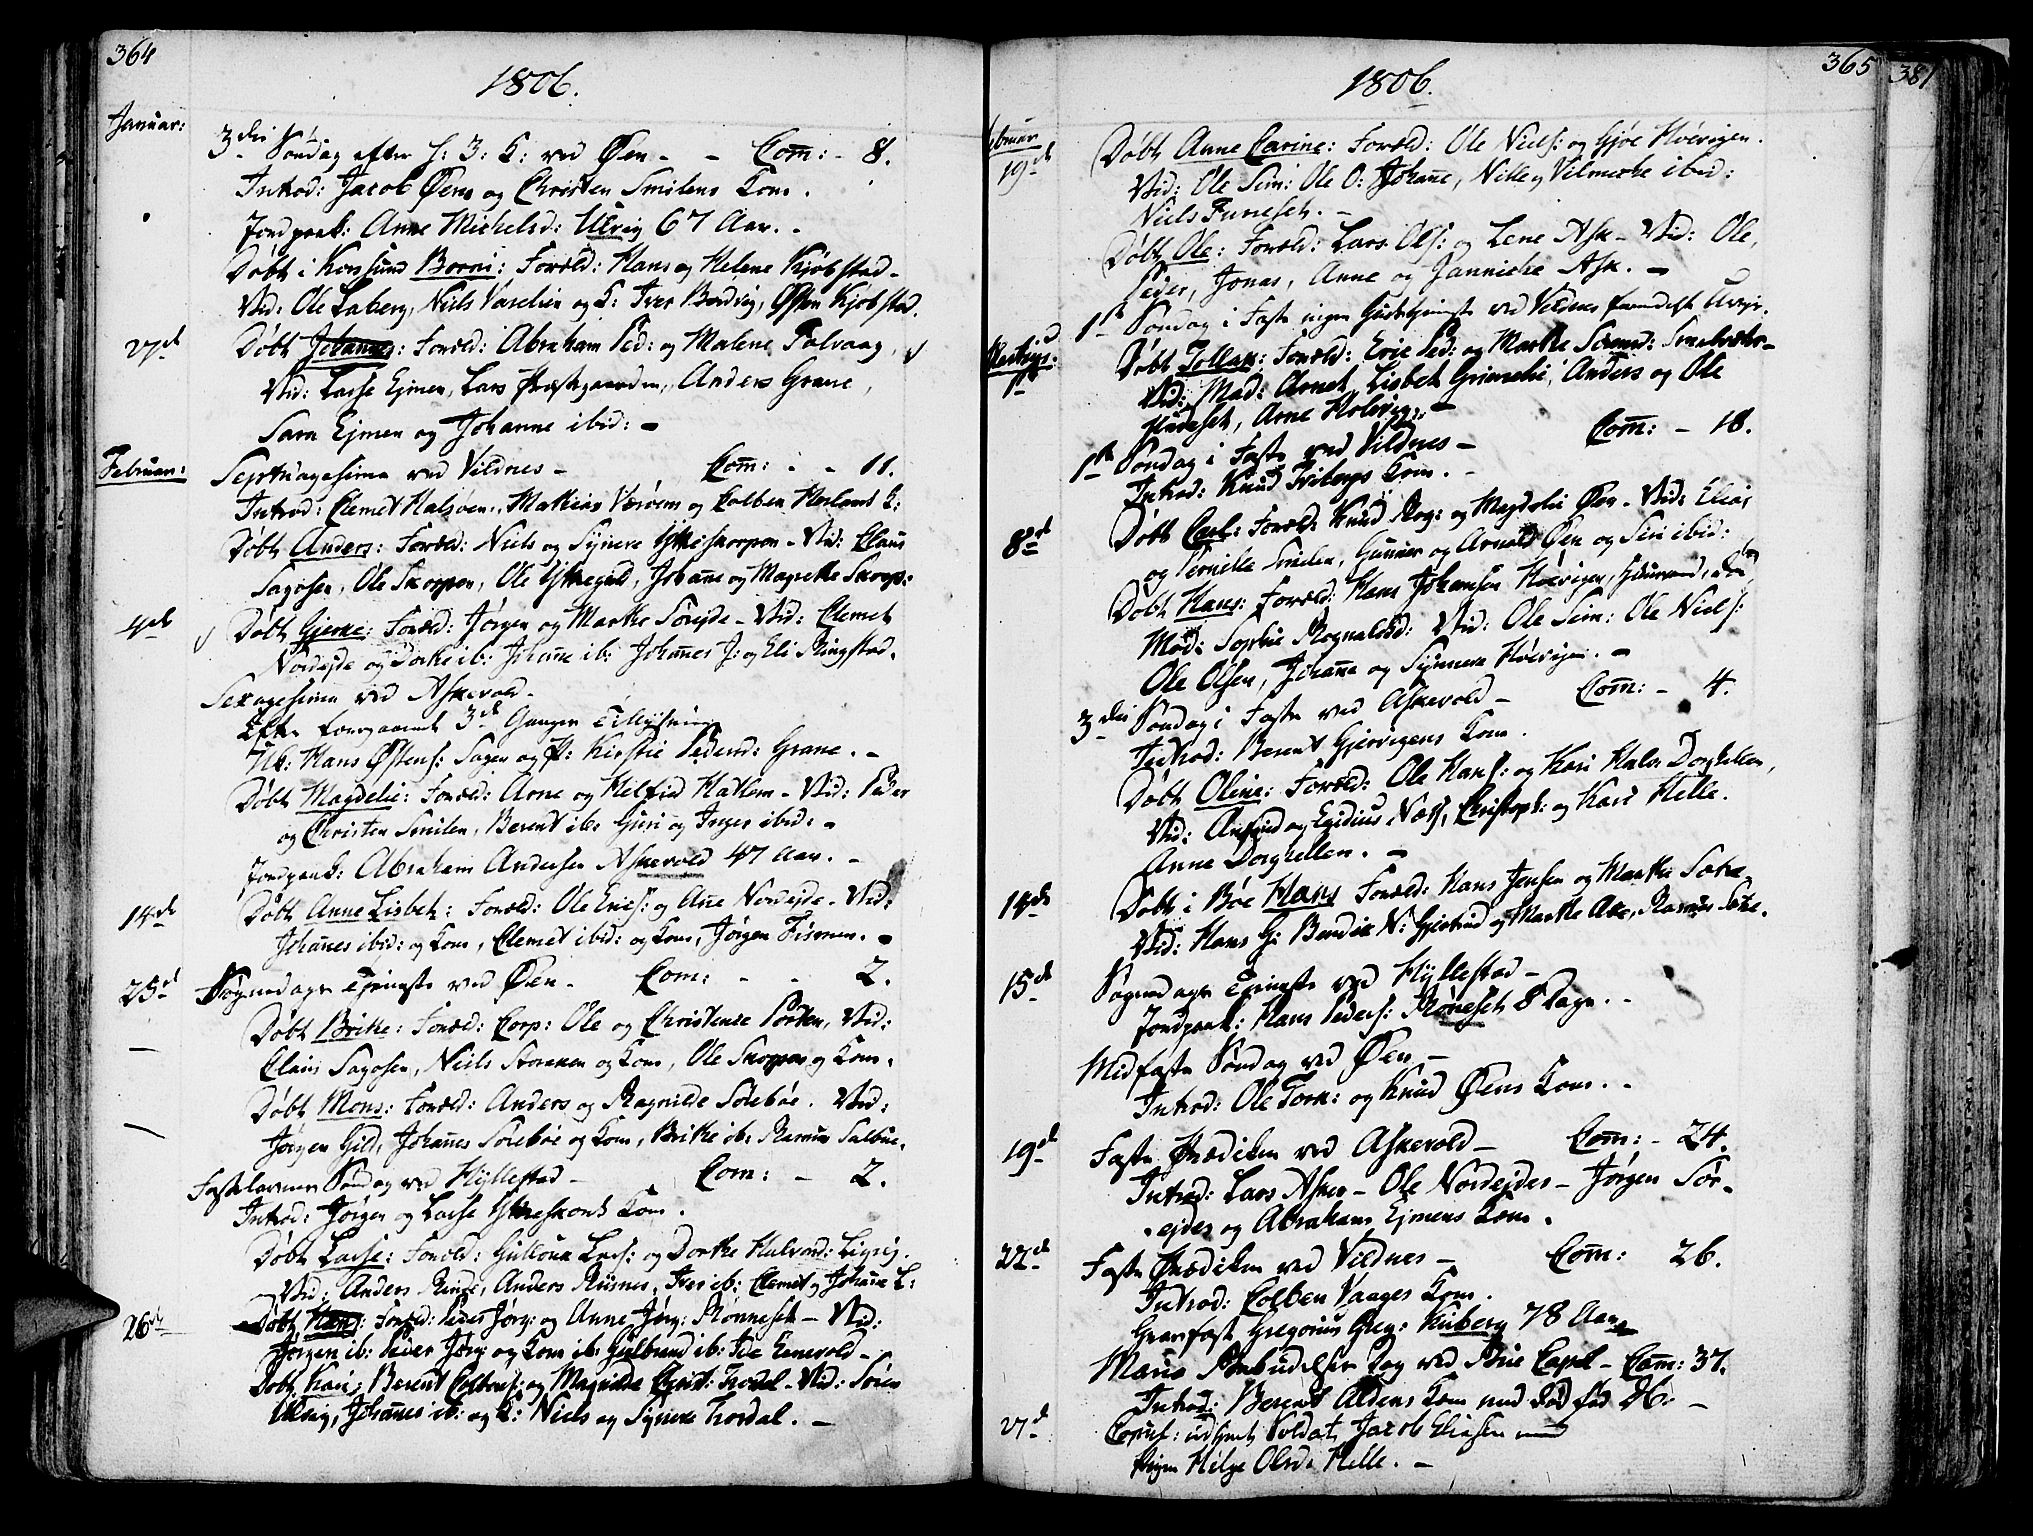 364
1806.
Januar:
3die Søndag efter H: 3: K: ved Øen - - Com̄: - 8.
Introd: Jacob Øens og Christen Smilens Kone.
Jordpaak: Anne Michelsd: Ulvig 67 Aar. -
Døbt i Korssund Borni: Foræld: Hans og Helene Kjøbstad -
Vid: Ole Laberg, Niels Værelien og K: Iver Bordvig, Østen Kjøbstad.
27de Døbt Johannes: Foræld: Abraham Ped: og Malene Folvaag,
Vid: Lasse Ejmen, Lars Præstegaarden, Anders Grane,
Sara Ejmen og Johanne ibid: -
Februar:
Septuagesima ved Vildnes - Com̄: - - 11.
Introd: Clemet Halsøens, Mathias Værøens og Colben Herlands K:
Døbt Anders: Foræld: Niels og Synere Ytre Skorpen - Vid: Claus
Sagosen, Ole Skorpen, Ole Ytregild, Johan̄e og Magrethe Skorp:
4de Døbt Gjerke: Foræld: Jørgen og Marthe Sørejde - Vid: Clemet
Nordejde og Dorthe ib: Johan̄e ib: Johan̄es J: og Eli Ringstad.
Sexagesima ved Askevold -
Efter foregaaende 3de Ganges Tillysning
Uk: Hans Østens: Sagen og P: Kirstie Pedersd: Grane. -
Døbt Magdeli: Foræld: Arne og Helfied Hatlem - Vid: Peder
og Christen Smilen, Berent ib: Guri og Inger ibid: -
Jordpaak: Abraham Andersen Askevold 47 Aar. -
14de Døbt Anne Lisbet: Foræld: Ole Erics: og An̄e Nordejde. Vid:
Johan̄es ibid: og Kone, Clemet ibid: og Kone, Jørgen Fismen. -
25de Søgnedags Tjeneste ved Øen - Com: - - 2.
Døbt Brithe: Foræld: Corp: Ole og Christense Porten, Vid:
Claus Sagosen, Niels Storaker og Kone, Ole Skorpen og Kone.
Døbt Mons: Foræld: Anders og Ragnilde Sørebøe. Vid:
Jørgen Gild, Johan̄es Sørebøe og Kone, Brithe ib: Rasmus Salbue.
Fastelavns Søndag ved Hyllestad - Com: - 2.
Introd: Jørgen og Lasse Ytreskords Kone.
Døbt Lasse: Foræld: Gulloua Lars: og Dorthe Halvord: Ligvig.
Vid: Anders Rinde, Anders Risnes, Iver ib: Clemet og Johan̄e L:
26de Døbt Hans: Foræld: Peder Jørg: og Anne Jørg: Rønneset - Vid:
Jørgen ib: Peder Jørg: og Kone ib: Gulbrand ib: Ide Eenevold -
Døbt Kari: Berent Colbens: og Magnilde Christ: Trodal - Vid: Søren
Ulvig, Johan̄es ib: og K: Niels og Synneve Trodal. -
365
381
1806.
Februar
19de Døbt Anne Carine: Foræld: Ole Niels: og Gjøe Høevigen.
Vid: Ole Sim: Ole O: Johan̄e, Nille, Vilmecke ibid:
Niels Furreset. -
Døbt Ole: Foræld: Lars Ols: og Lene Ask - Vid: Ole,
Peder, Jonas, Anne og Jannicke Ask. -
1ste Søndag i Faste ingen Gudstjeneste ved Vildnes formedelst Uvejr.
Martius.
1ste Døbt Tollak: Foræld: Eric Ped: og Marthe Simsd:
Vid: Mad: Arnet, Lisbet Grimelie, Anders og Ole
Hundeset, Arne Holevig. - Com̄: - 18.
1ste Søndag i Faste ved Vildnes -
Introd: Knud Tviborgs Kone. -
8de Døbt Carl: Foræld: Knud Rog: og Magdeli Øen - Vid: Elias
og Pernille Smilen, Gunner og Arnold Øen og Siri ibid:
Døbt Hans: Foræld: Hans Johansen Høevigen,
Mod: Sophie Rognaldsd: Vid: Ole Sim: Ole Niels:
Ole Olsen, Johan̄e og Synneve Høevigen. -
3die Søndag i Faste ved Askevold - Com̄: - 4.
Introd: Berent Gjervigens Kone.
Døbt Oline: Foræld: Ole Hans: og Kari Halv: Dorhellen,
Vid: Anfind og Egidius Næss, Christoph: og Kari Helle.
Anne Dorhellen. -
14de Døbt i Bøe Hans Foræld: Hans Jensen og Marthe Sotre -
Vid: Hans G: Bendix N: Gjertrud og Marthe Ake, Rasmus Sotre.
15de Søgnedags Tjeneste ved Hyllestad -
Jordpaak: Hans Peders: Rønneset 8 Dage. -
Midfaste Søndag ved Øen -
Introd: Ole Tork: og Knud Øens Kone. -
19de Faste Prædiken ved Askevold - Com̄: - 24.
Introd: Lars Asker - Ole Nordejdes - Jørgen Sør-
ejdes og Abraham Ejmens Kone.
22de Faste Prædiken ved Vildnes - Com̄: 26.
Introd: Colben Vaages Kone.
Gravfæst Gregorius Greg: Kuberg 78 Aar
Mariæ Bebudelses Dag ved Bue Capel - Com̄: 37.
Introd: Berent Aldens Kone med død fød Db: -
27de Copul: udtient Soldat Jacob Eliasen med
Pigen Helge Olsd: Helle. -